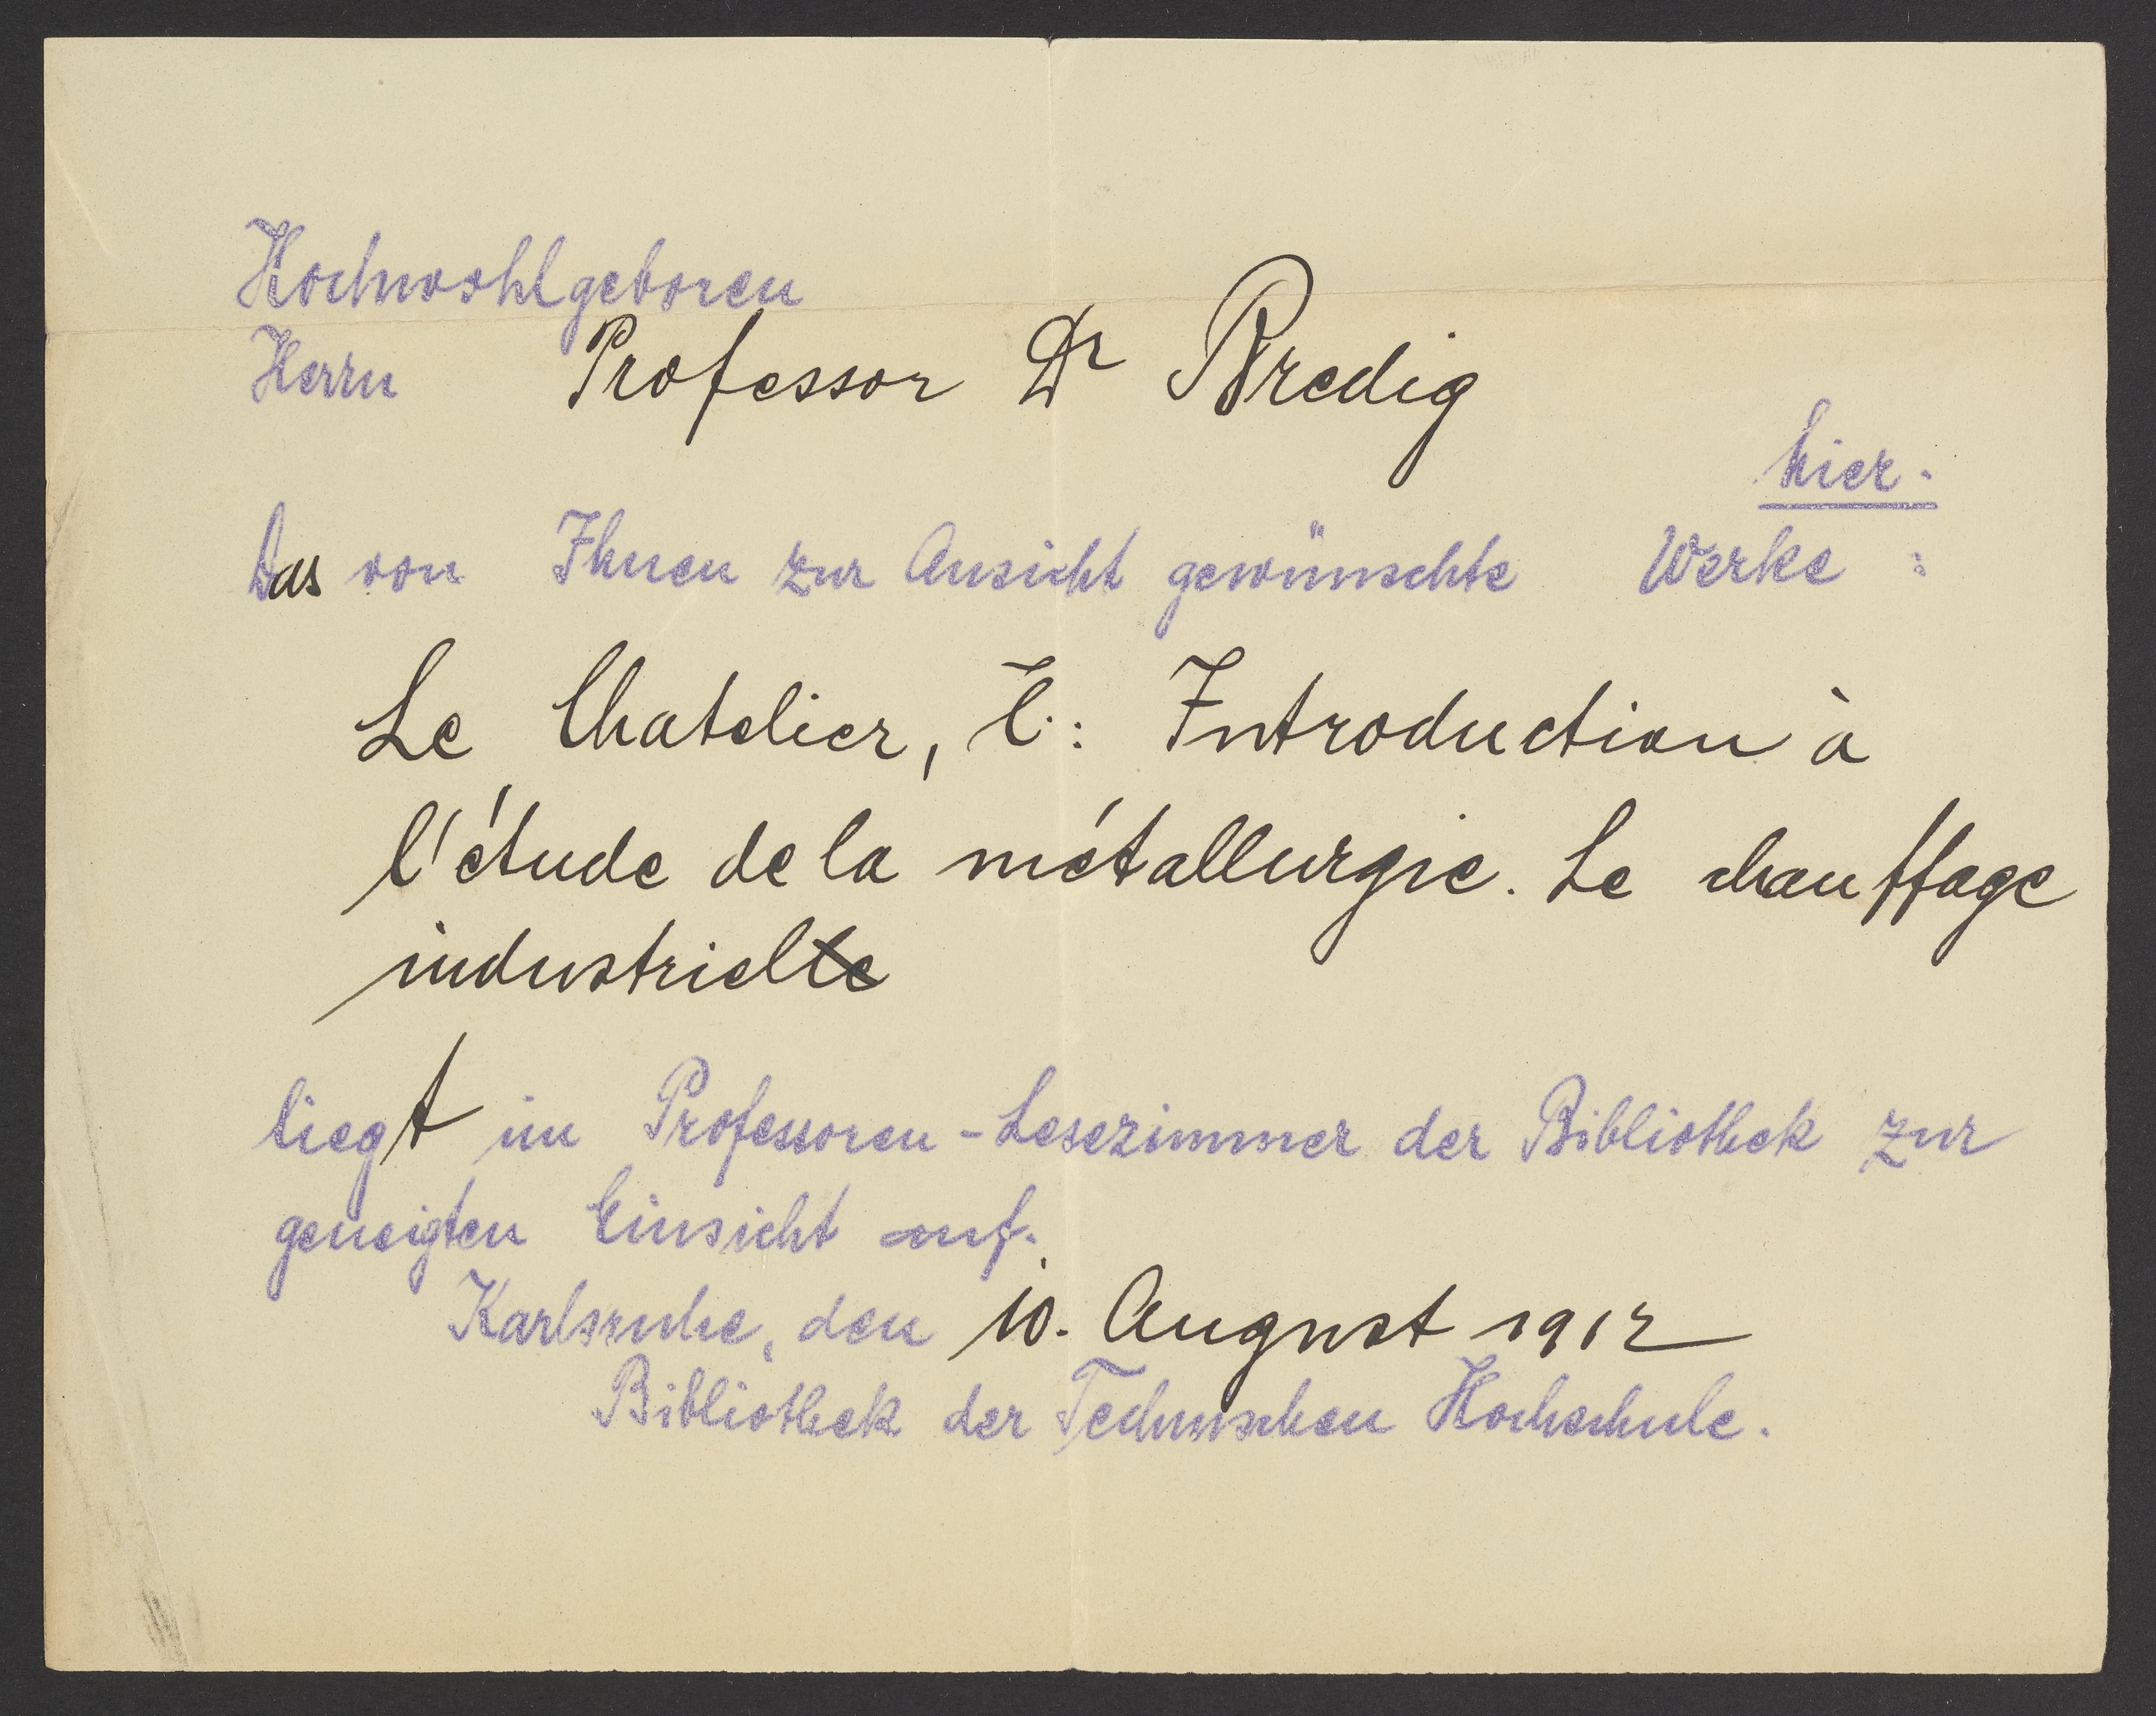 Hochwohlgeboren
Herrn Professor Dr Bredig
hier.
Das von Ihnen zur Ansicht gewünschte Werke :
Le Chatelier, : Introduction à
l'étude de la métallurgie. Le chauffage
industrielle
liegt im Professoren-Lesezimmer der Bibliothek zur
geneigten Einsicht auf.
Karlsruhe, den 10. August 1912
Bibliothek der Technischen Hochschule.